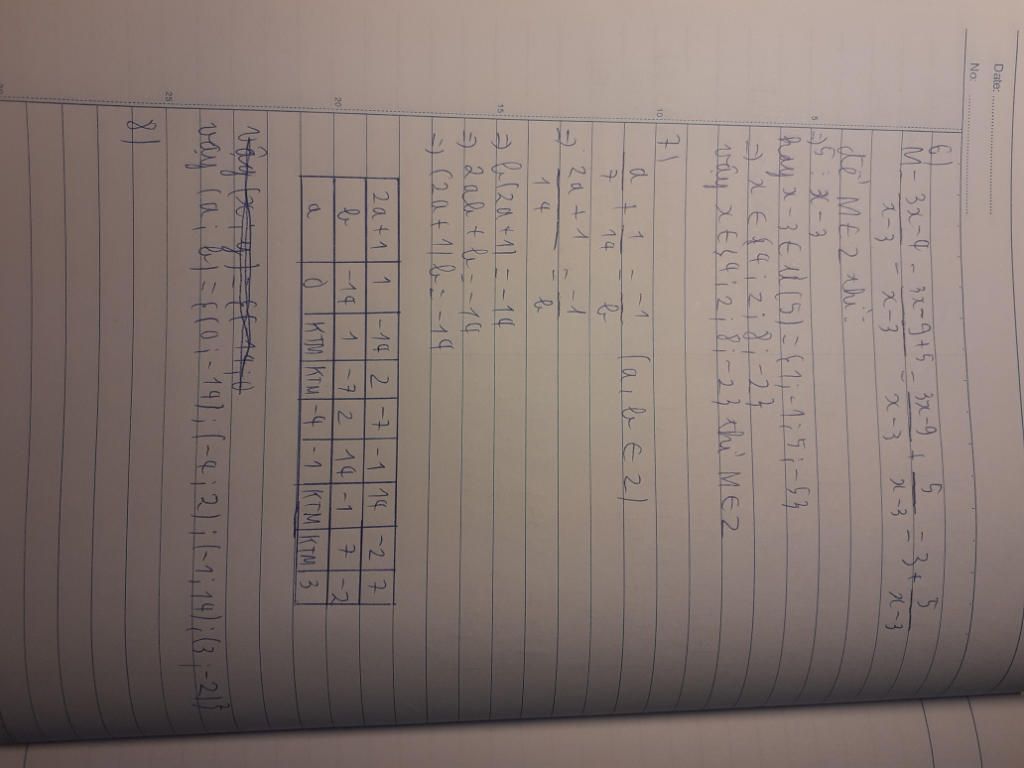 Date:
No:
6)
M = 3x-4/x-3 = 3x-9+5/x-3 = 3x-9/x-3 + 5/x-3 = 3 + 5/x-3
để M ∈ Z thì:
5
⇒ 5 ⋮ x-3
hay x-3 ∈ Ư(5) = {1; -1; 5; -5}
⇒ x ∈ {4; 2; 8; -2}
vậy x ∈ {4; 2; 8; -2} thì M ∈ Z
10
7)
a/7 + 1/14 = -1/b (a, b ∈ Z)
⇒ 2a+1/14 = -1/b
15
⇒ b(2a+1) = -14
⇒ 2ab + b = -14
⇒ (2a+1)b = -14
2a+1 | 1 | -14 | 2 | -7 | -1 | 14 | -2 | 7
20
b | -14 | 1 | -7 | 2 | 14 | -1 | 7 | -2
a | 0 | KTM | KTM | -4 | -1 | KTM | KTM | 3
vậy (a; b) = {(0; -14); (-4; 2); (-1; 14); (3; -2)}
25
8)
30